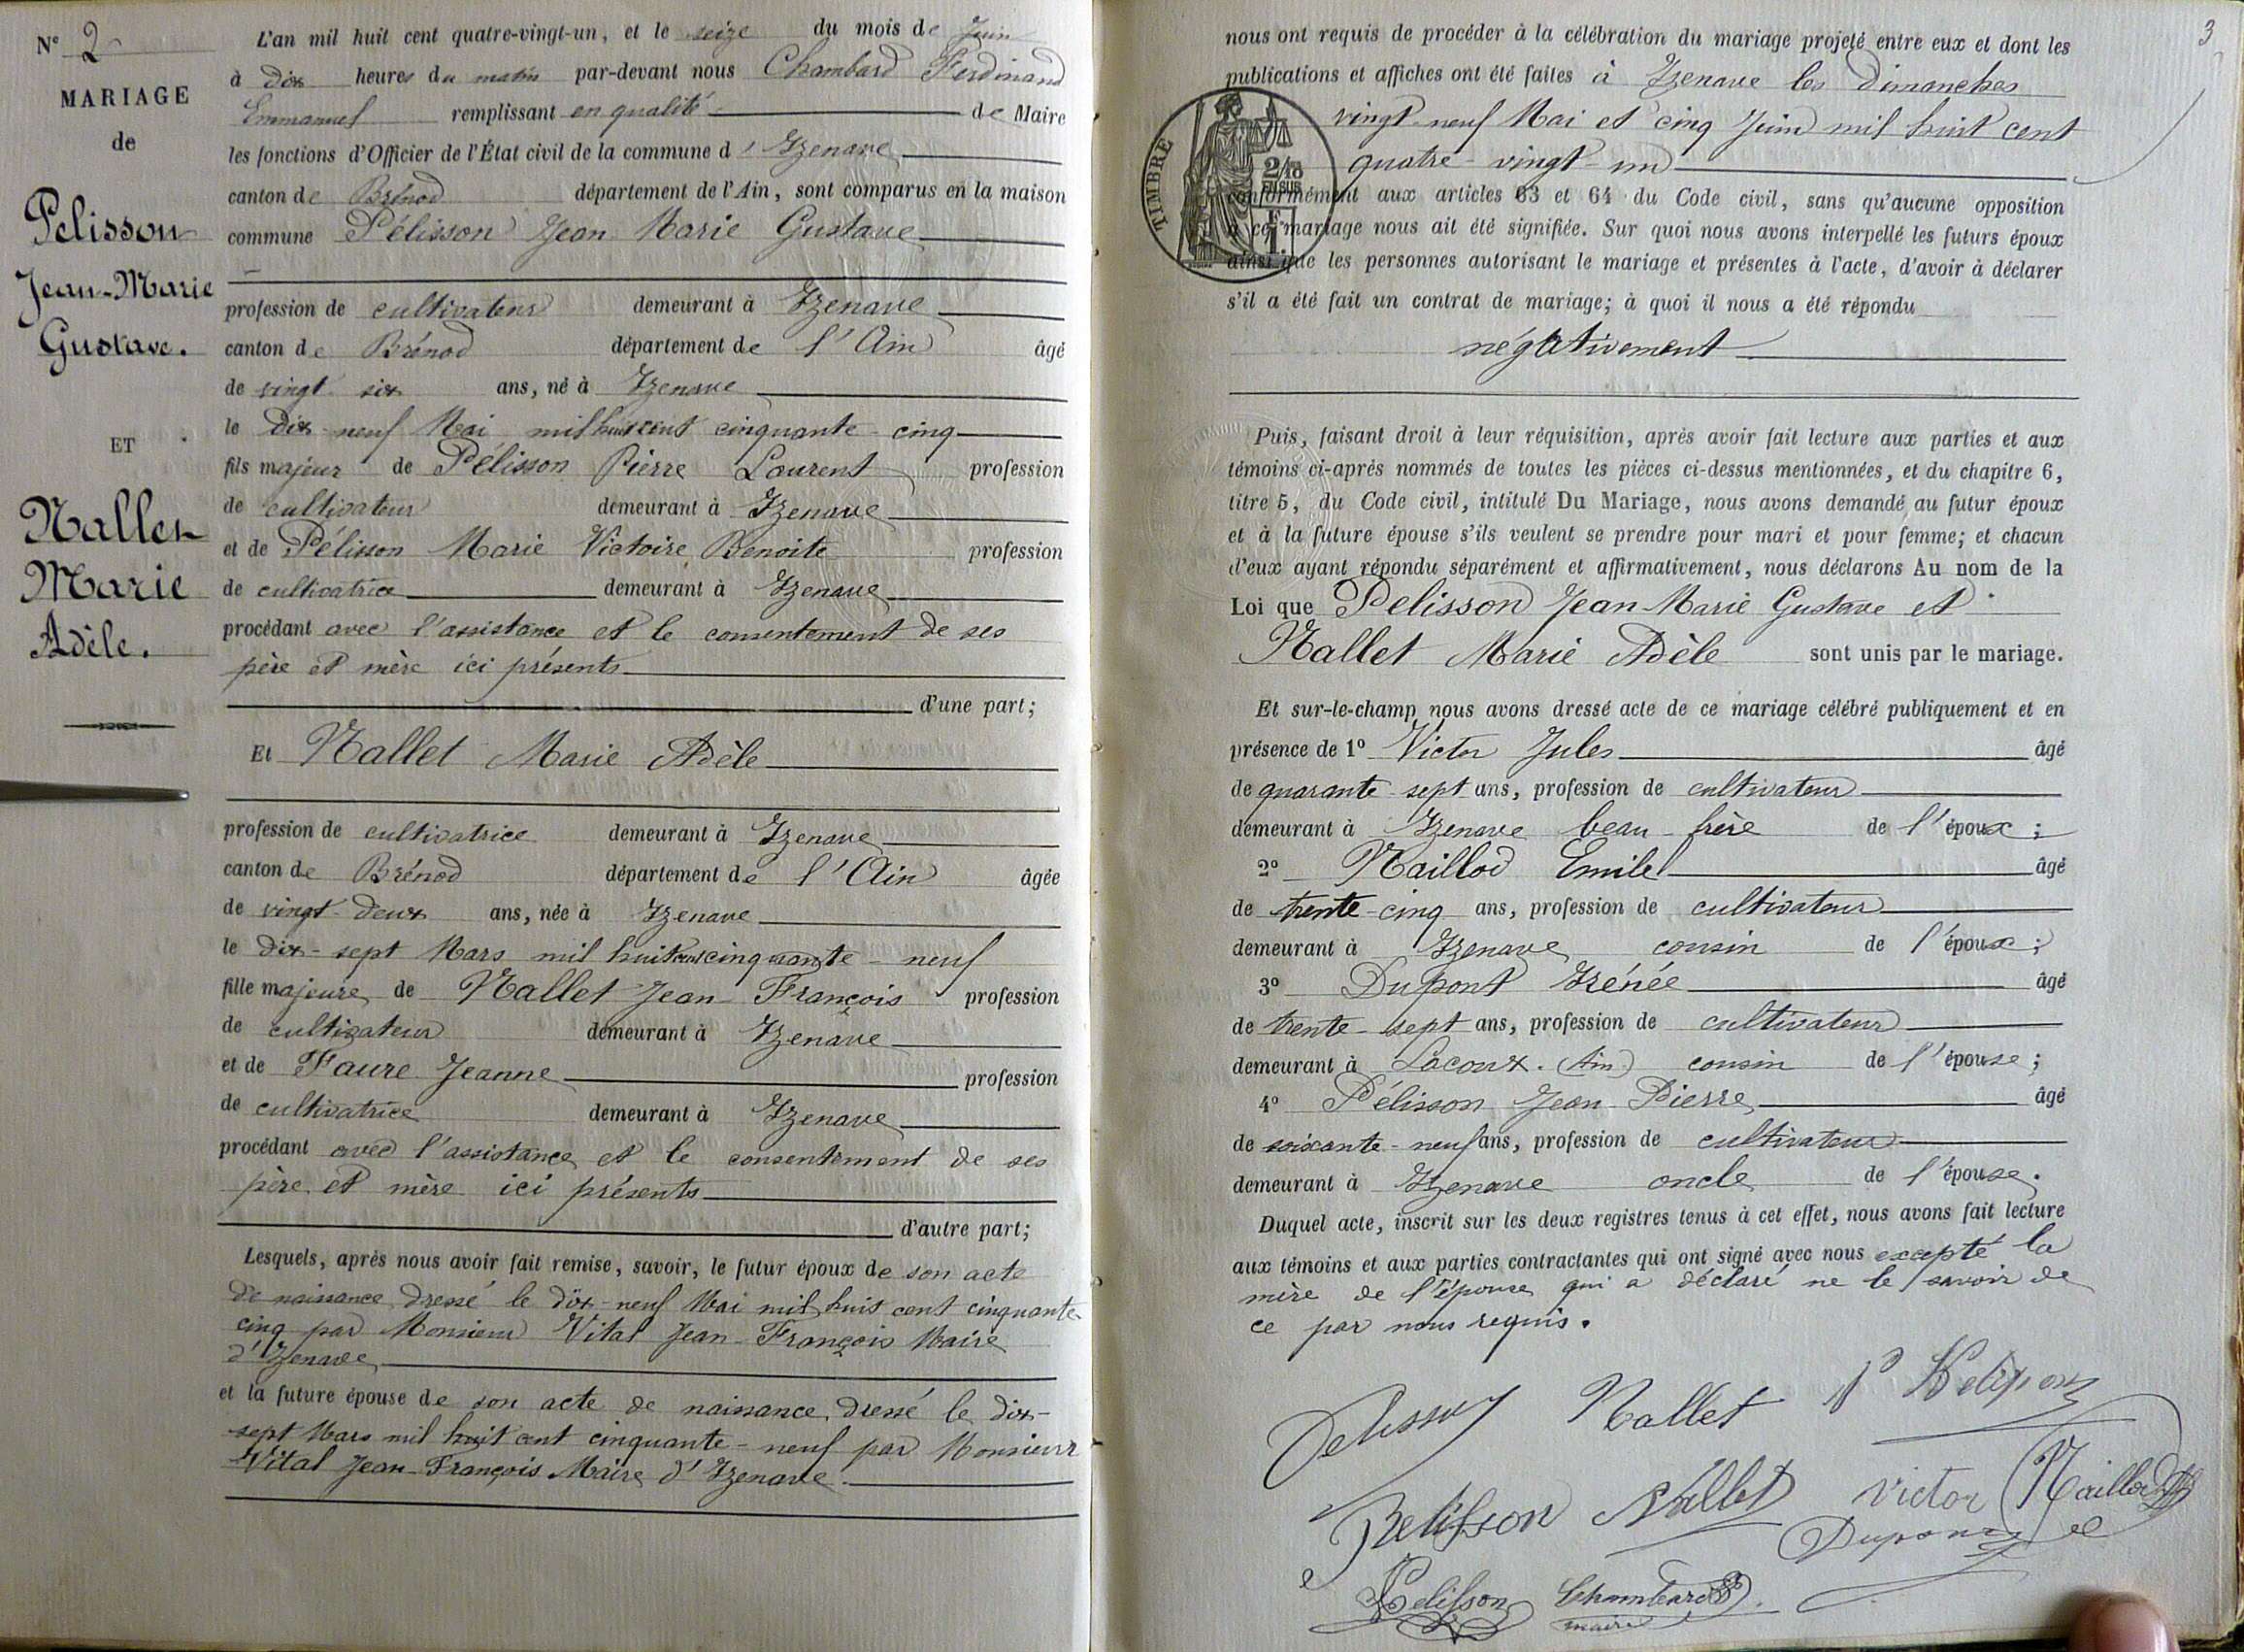 N° 2
MARIAGE
de
Pelisson
Jean-Marie
Gustave.
ET
Nallet
Marie
Adèle.
L'an mil huit cent quatre-vingt-un, et le seize du mois de Juin
à dix heures du matin par-devant nous Chambard Ferdinand
Emmanuel remplissant en qualité de Maire
les fonctions d'Officier de l'État civil de la commune d'Izenave
canton de Brénod département de l'Ain, sont comparus en la maison
commune Pélisson Jean Marie Gustave
profession de cultivateur demeurant à Izenave
canton de Brénod département de l'Ain âgé
de vingt six ans, né à Izenave
le dix-neuf Mai mil huit cent cinquante-cinq
fils majeur de Pélisson Pierre Laurent profession
de cultivateur demeurant à Izenave
et de Pélisson Marie Victoire Benoite profession
de cultivatrice demeurant à Izenave
procédant avec l'assistance et le consentement de ses
père et mère ici présents
d'une part;
Et Nallet Marie Adèle
profession de cultivatrice demeurant à Izenave
canton de Brénod département de l'Ain âgée
de vingt-deux ans, née à Izenave
le dix-sept Mars mil huit cent cinquante-neuf
fille majeure de Nallet Jean-François profession
de cultivateur demeurant à Izenave
et de Faure Jeanne profession
de cultivatrice demeurant à Izenave
procédant avec l'assistance et le consentement de ses
père et mère ici présents
d'autre part;
Lesquels, après nous avoir fait remise, savoir, le futur époux de son acte
de naissance dressé le dix-neuf Mai mil huit cent cinquante
cinq par Monsieur Vital Jean-François Maire
d'Izenave
et la future épouse de son acte de naissance dressé le dix-
sept Mars mil huit cent cinquante-neuf par Monsieur
Vital Jean-François Maire d'Izenave
3
nous ont requis de procéder à la célébration du mariage projeté entre eux et dont les
publications et affiches ont été faites à Izenave les Dimanches
vingt-neuf Mai et cinq Juin mil huit cent
quatre-vingt-un
TIMBRE
2/10
EN SUS
1 F.
conformément aux articles 63 et 64 du Code civil, sans qu'aucune opposition
à ce mariage nous ait été signifiée. Sur quoi nous avons interpellé les futurs époux
ainsi que les personnes autorisant le mariage et présentes à l'acte, d'avoir à déclarer
s'il a été fait un contrat de mariage; à quoi il nous a été répondu
négativement
Puis, faisant droit à leur réquisition, après avoir fait lecture aux parties et aux
témoins ci-après nommés de toutes les pièces ci-dessus mentionnées, et du chapitre 6,
titre 5, du Code civil, intitulé Du Mariage, nous avons demandé au futur époux
et à la future épouse s'ils veulent se prendre pour mari et pour femme; et chacun
d'eux ayant répondu séparément et affirmativement, nous déclarons Au nom de la
Loi que Pelisson Jean-Marie Gustave et
Nallet Marie Adèle sont unis par le mariage.
Et sur-le-champ nous avons dressé acte de ce mariage célébré publiquement et en
présence de 1° Victor Jules âgé
de quarante-sept ans, profession de cultivateur
demeurant à Izenave beau-frère de l'époux;
2° Maillod Emile âgé
de trente-cinq ans, profession de cultivateur
demeurant à Izenave cousin de l'époux;
3° Dupont Irénée âgé
de trente-sept ans, profession de cultivateur
demeurant à Lacoux (Ain) cousin de l'épouse;
4° Pélisson Jean-Pierre âgé
de soixante-neuf ans, profession de cultivateur
demeurant à Izenave oncle de l'épouse.
Duquel acte, inscrit sur les deux registres tenus à cet effet, nous avons fait lecture
aux témoins et aux parties contractantes qui ont signé avec nous excepté la
mère de l'épouse qui a déclaré ne le savoir de
ce par nous requis.
Pelisson Nallet P Pelisson
Pelisson Nallet Victor Maillod
Dupont
Pelisson Chambard
maire